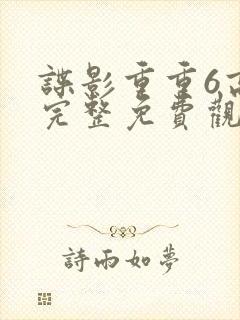 諜影重重6高
完整免費觀
詩雨如夢